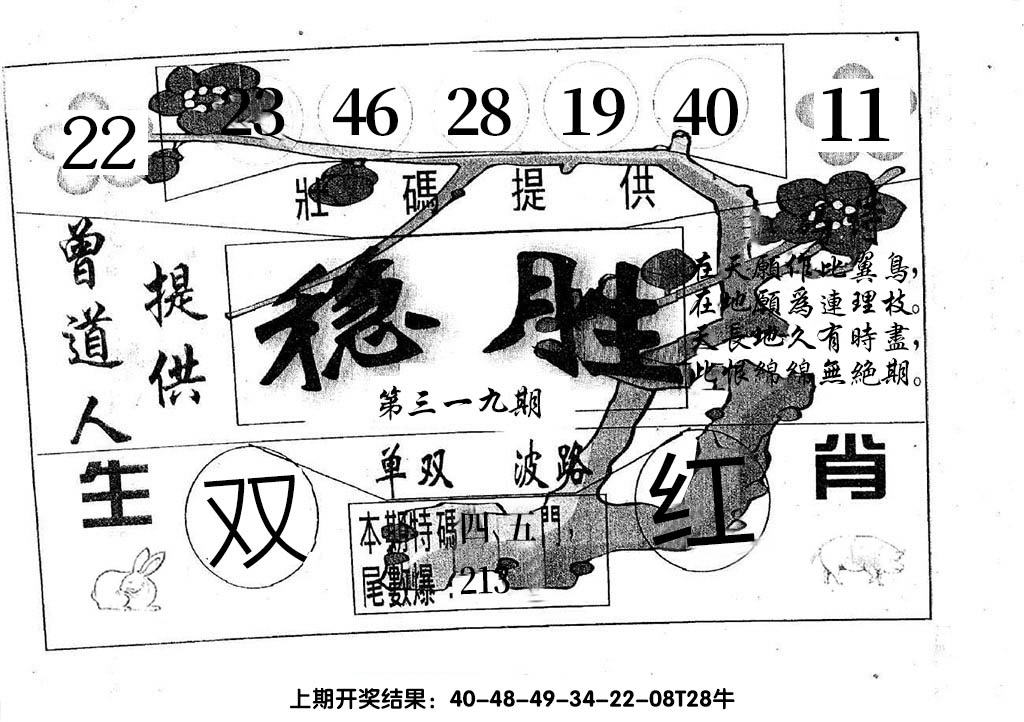 22 23 46 28 19 40 11
壯碼提供
曾道人
提供
稳胜
第三一九期
在天願作比翼鳥，
在地願爲連理枝。
天長地久有時盡，
此恨綿綿無絶期。
生肖
单双 波路
双 红
本期特碼四、五門，
尾數爆：213
上期开奖结果：40-48-49-34-22-08T28牛